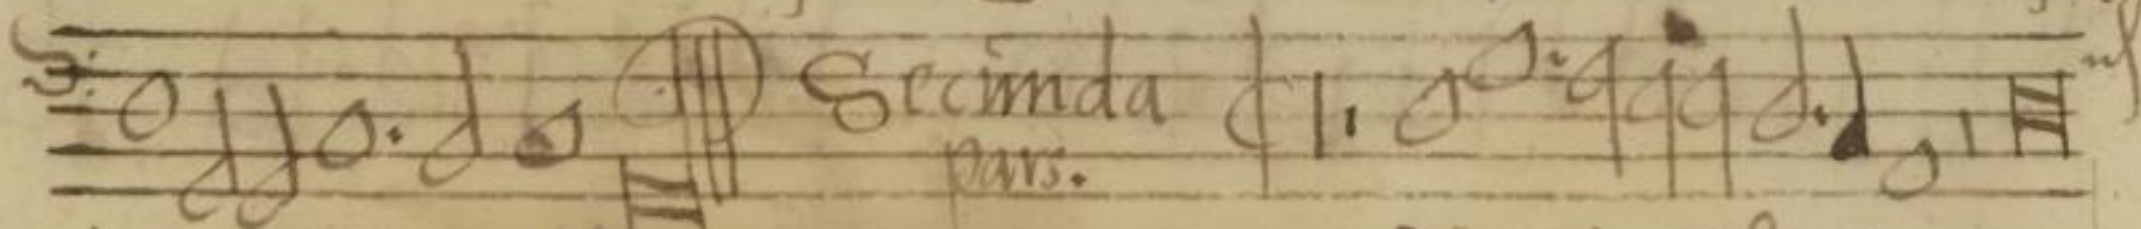 Secunda
pars.